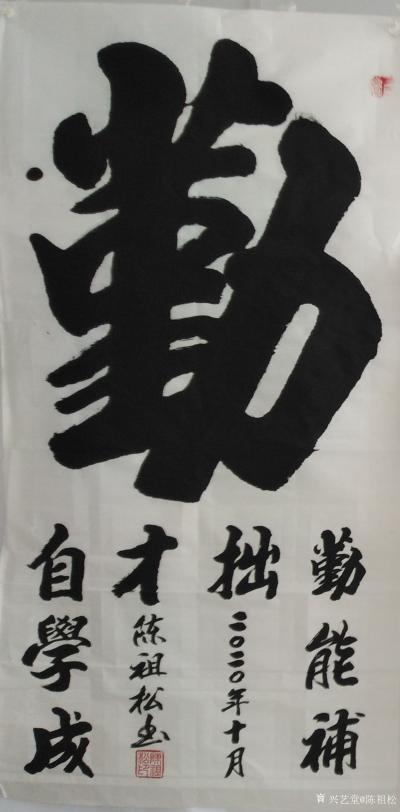 勤
勤能補
拙
自學成
才
二〇二〇年十月
陈祖松书
兴艺堂@陈祖松